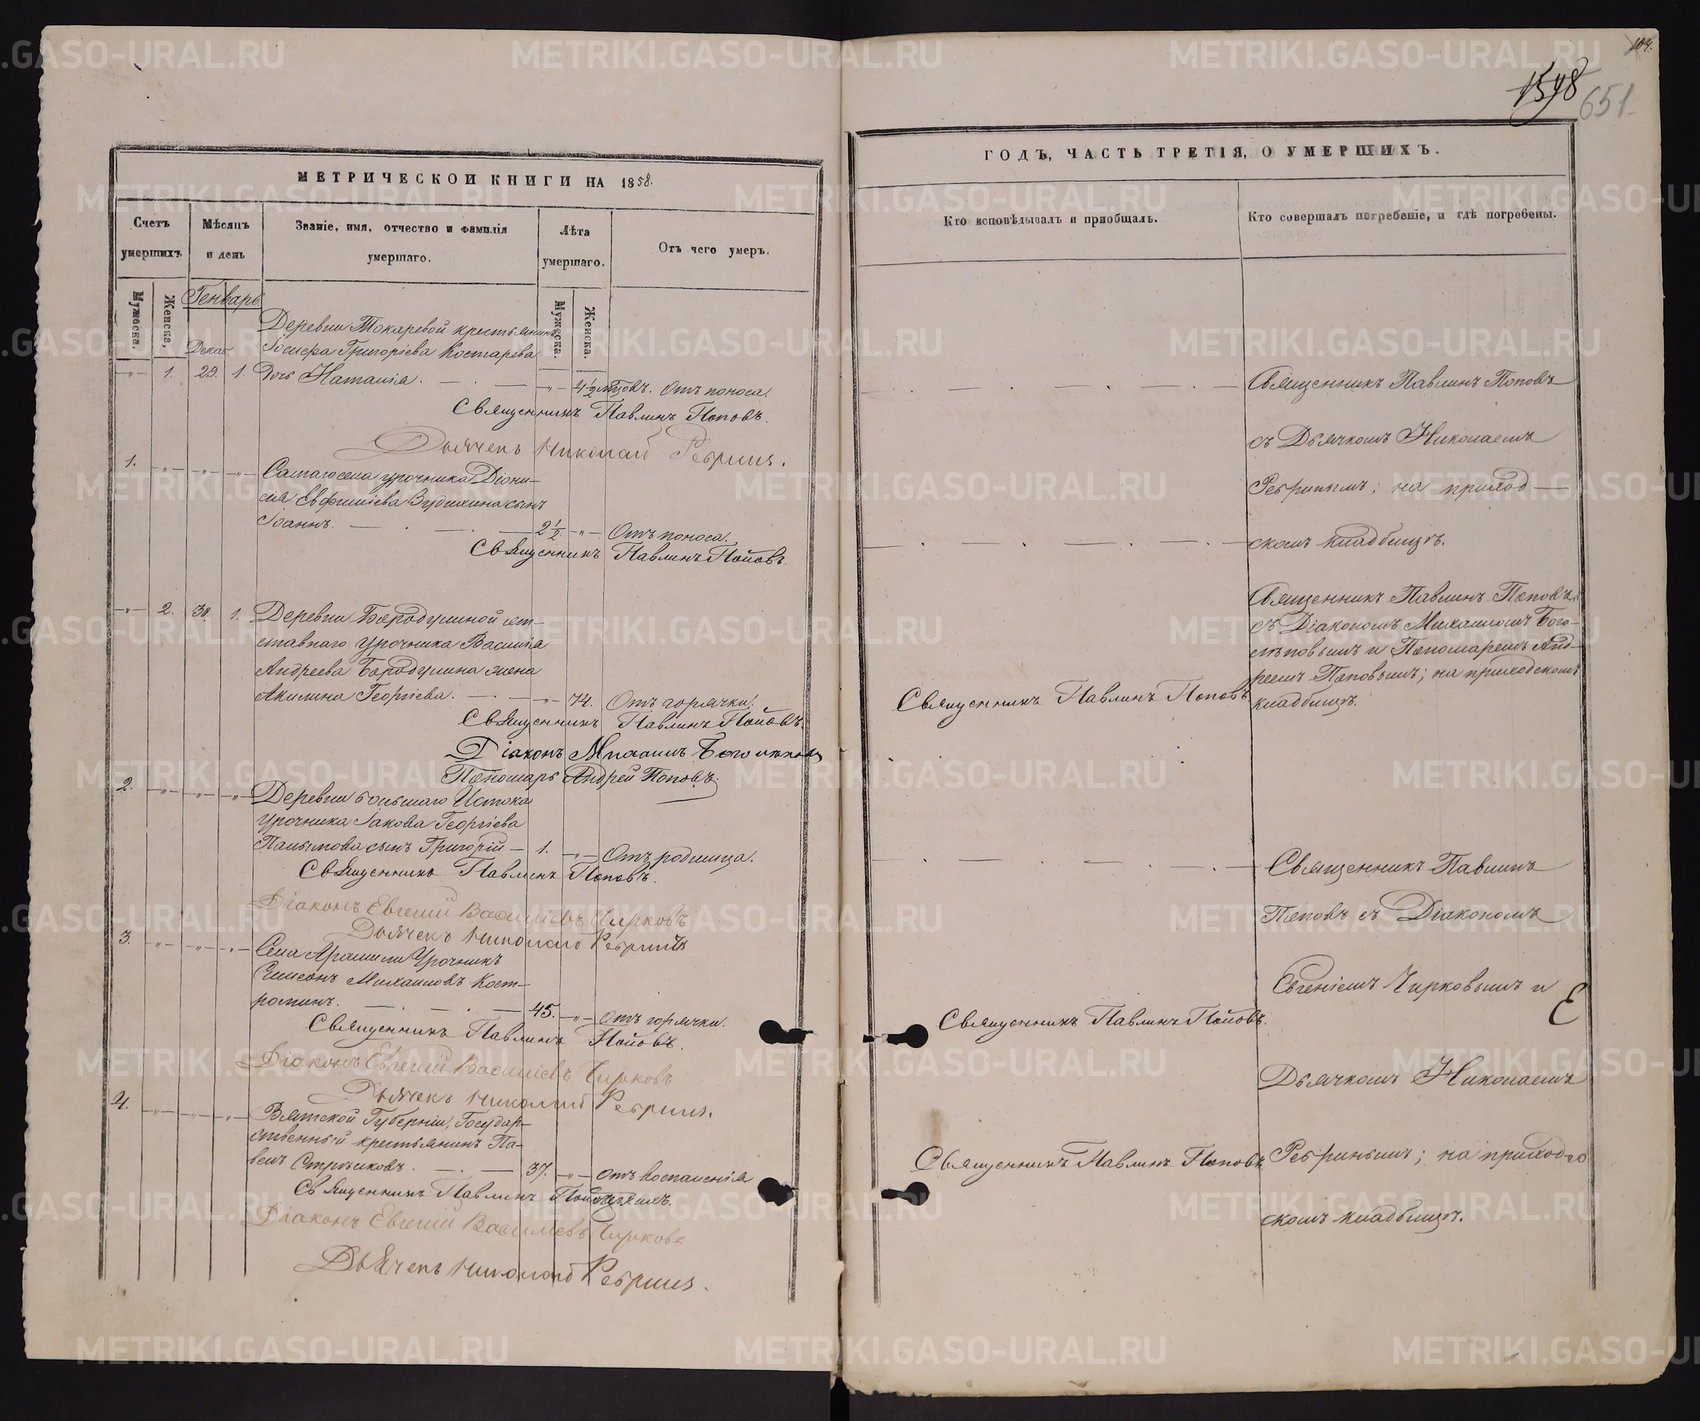 104.
1548
651.
МЕТРИЧЕСКОИ КНИГИ НА 1858.
Счетъ умершихъ
Мѣсяцъ и день
Званіе, имя, отчество и фамилія умершаго.
Лѣта умершаго.
Отъ чего умеръ.
Мужеска.
Женска.
Мужеска.
Женска.
Генварь
Дека
Деревни Токаревой крестьянина
Іосифа Григорієва Костарева
-"- 1. 29. 1. Дочь Наталія. -"- 4½ мѣсяцовъ. Отъ поноса.
Священникъ Павлинъ Поповъ.
Дьячекъ Николай Ребринъ.
1. -"- -"- -"- Самаго села урочника Діони-
сія Евфиміева Зудихина сынъ
Іоаннъ. 2½ -"- Отъ поноса.
Священникъ Павлинъ Поповъ.
-"- 2. 30. 1. Деревни Бородулиной от-
ставнаго урочника Василія
Андреева Бородулина жена
Акилина Георгіева. -"- 74. Отъ горячки.
Священникъ Павлинъ Поповъ.
Діаконъ Михаилъ Боголѣповъ
Пономарь Андрей Поповъ.
2. -"- -"- -"- Деревни большаго Истока
урочника Іакова Георгіева
сынъ Григорій 1. -"- Отъ родимца.
Священникъ Павлинъ Поповъ.
Діаконъ Евгеній Васильевъ Чирковъ
Дьячекъ Николай Ребринъ
3. -"- -"- -"- Села Арамили Урочникъ
Симеонъ Михаиловъ Кост-
роминъ. 45. -"- Отъ горячки.
Священникъ Павлинъ Поповъ.
Діаконъ Евгеній Васильевъ Чирковъ
Дьячекъ Николай Ребринъ.
4. -"- -"- -"- Вятской Губерніи, Государ-
ственный крестьянинъ Па-
велъ Стрѣлковъ. 37. -"- отъ воспаленія
Священникъ Павлинъ Поповъ
Діаконъ Евгеній Васильевъ Чирковъ
Дьячекъ Николай Ребринъ.
ГОДЪ, ЧАСТЬ ТРЕТІЯ, О УМЕРШИХЪ.
Кто исповѣдывалъ и приобщалъ.
Кто совершалъ погребеніе, и гдѣ погребены.
Священникъ Павлинъ Поповъ
съ Дьячкомъ Николаемъ
Ребринымъ; на приход-
скомъ кладбищѣ.
Священникъ Павлинъ Поповъ
съ Діакономъ Михаиломъ Бого-
лѣповымъ и Пономаремъ Анд-
реемъ Поповымъ; на приходскомъ
кладбищѣ.
Священникъ Павлинъ Поповъ
Священникъ Павлинъ
Поповъ съ Діакономъ
Евгеніемъ Чирковымъ и
Священникъ Павлинъ Поповъ.
Дьячкомъ Николаемъ
Священникъ Павлинъ Поповъ
Ребринымъ; на приход-
скомъ кладбищѣ.
METRIKI.GASO-URAL.RU